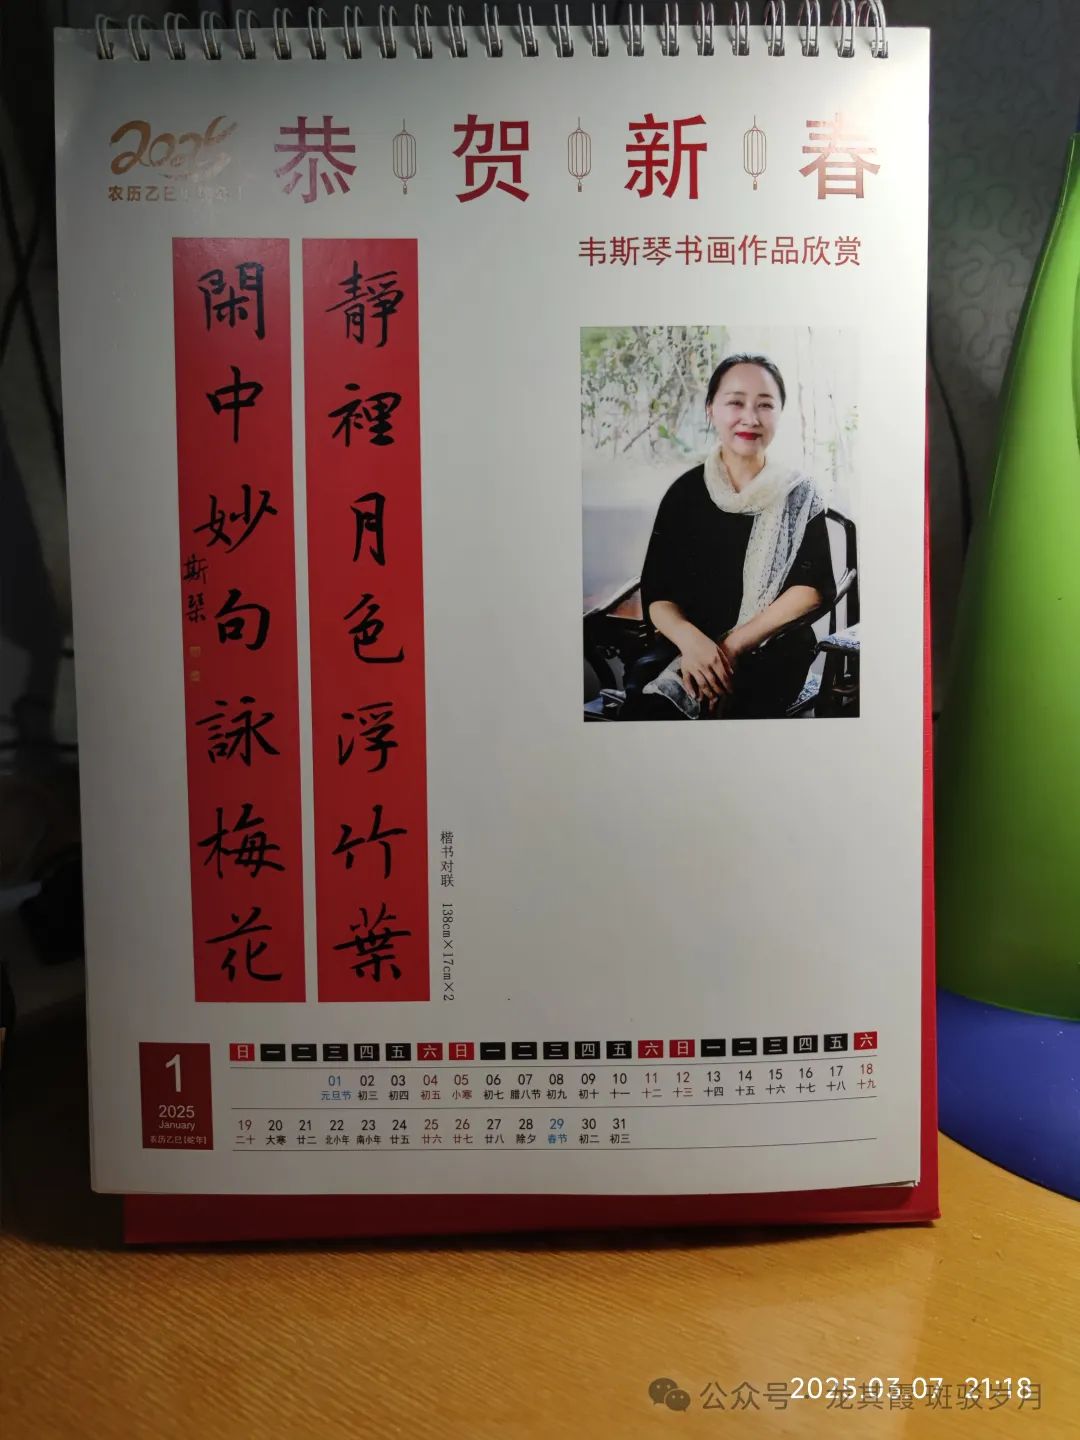 2025
农历乙巳【蛇年】
恭贺新春
韦斯琴书画作品欣赏
靜裡月色浮竹葉
閑中妙句詠梅花
斯琴
楷书对联 138cm×17cm×2
1
2025
January
农历乙巳【蛇年】
日 一 二 三 四 五 六 日 一 二 三 四 五 六 日 一 二 三 四 五 六
01 02 03 04 05 06 07 08 09 10 11 12 13 14 15 16 17 18
元旦节 初三 初四 初五 小寒 初七 腊八节 初九 初十 十一 十二 十三 十四 十五 十六 十七 十八 十九
19 20 21 22 23 24 25 26 27 28 29 30 31
二十 大寒 廿二 北小年 南小年 廿五 廿六 廿七 廿八 除夕 春节 初二 初三
公众号·龙其霞 班驳岁月
2025.03.07 21:18